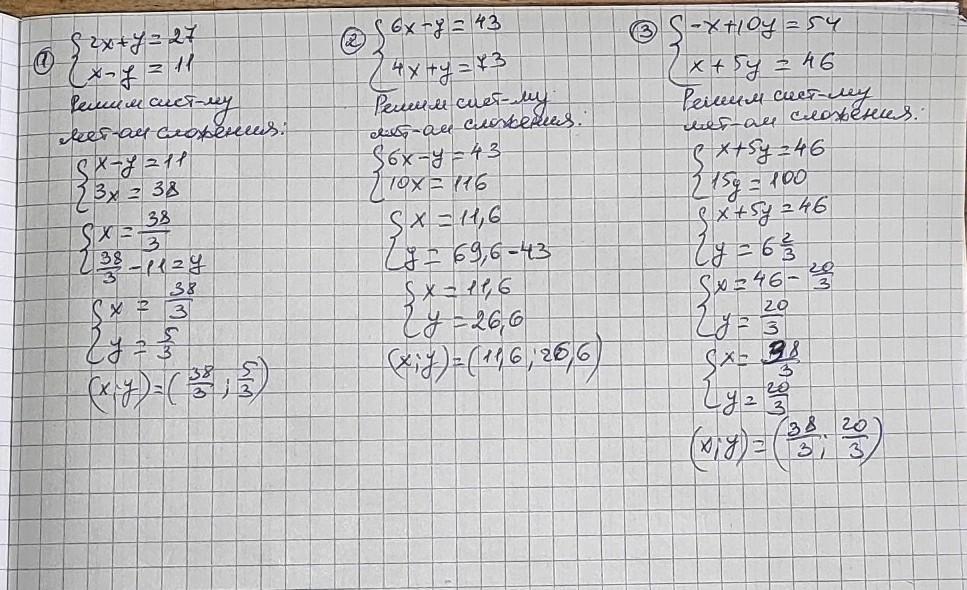 ① { 2x+y=27
x-y=11
Решим сист-му
мет-ом сложения:
{ x-y=11
3x=38
{ x=38/3
38/3-11=y
{ x=38/3
y=5/3
(x;y)=(38/3;5/3)
② { 6x-y=43
4x+y=73
Решим сист-му
мет-ом сложения:
{ 6x-y=43
10x=116
{ x=11,6
y=69,6-43
{ x=11,6
y=26,6
(x;y)=(11,6;26,6)
③ { -x+10y=54
x+5y=46
Решим сист-му
мет-ом сложения:
{ x+5y=46
15y=100
{ x+5y=46
y=6 2/3
{ x=46-20/3
y=20/3
{ x=38/3
y=20/3
(x;y)=(38/3;20/3)